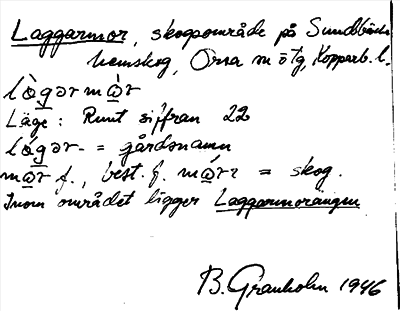 Laggarmor, skogsområde på Sundsbäcks
hemskog, Orsa m ö tg, Kopparb. l.
lògər mὼr
Läge: Runt siffran 22
lógər = gårdsnamn
mὼr f., best. f. mὼrɪ = skog.
Inom området ligger Laggarmorängen
B. Granholm 1946